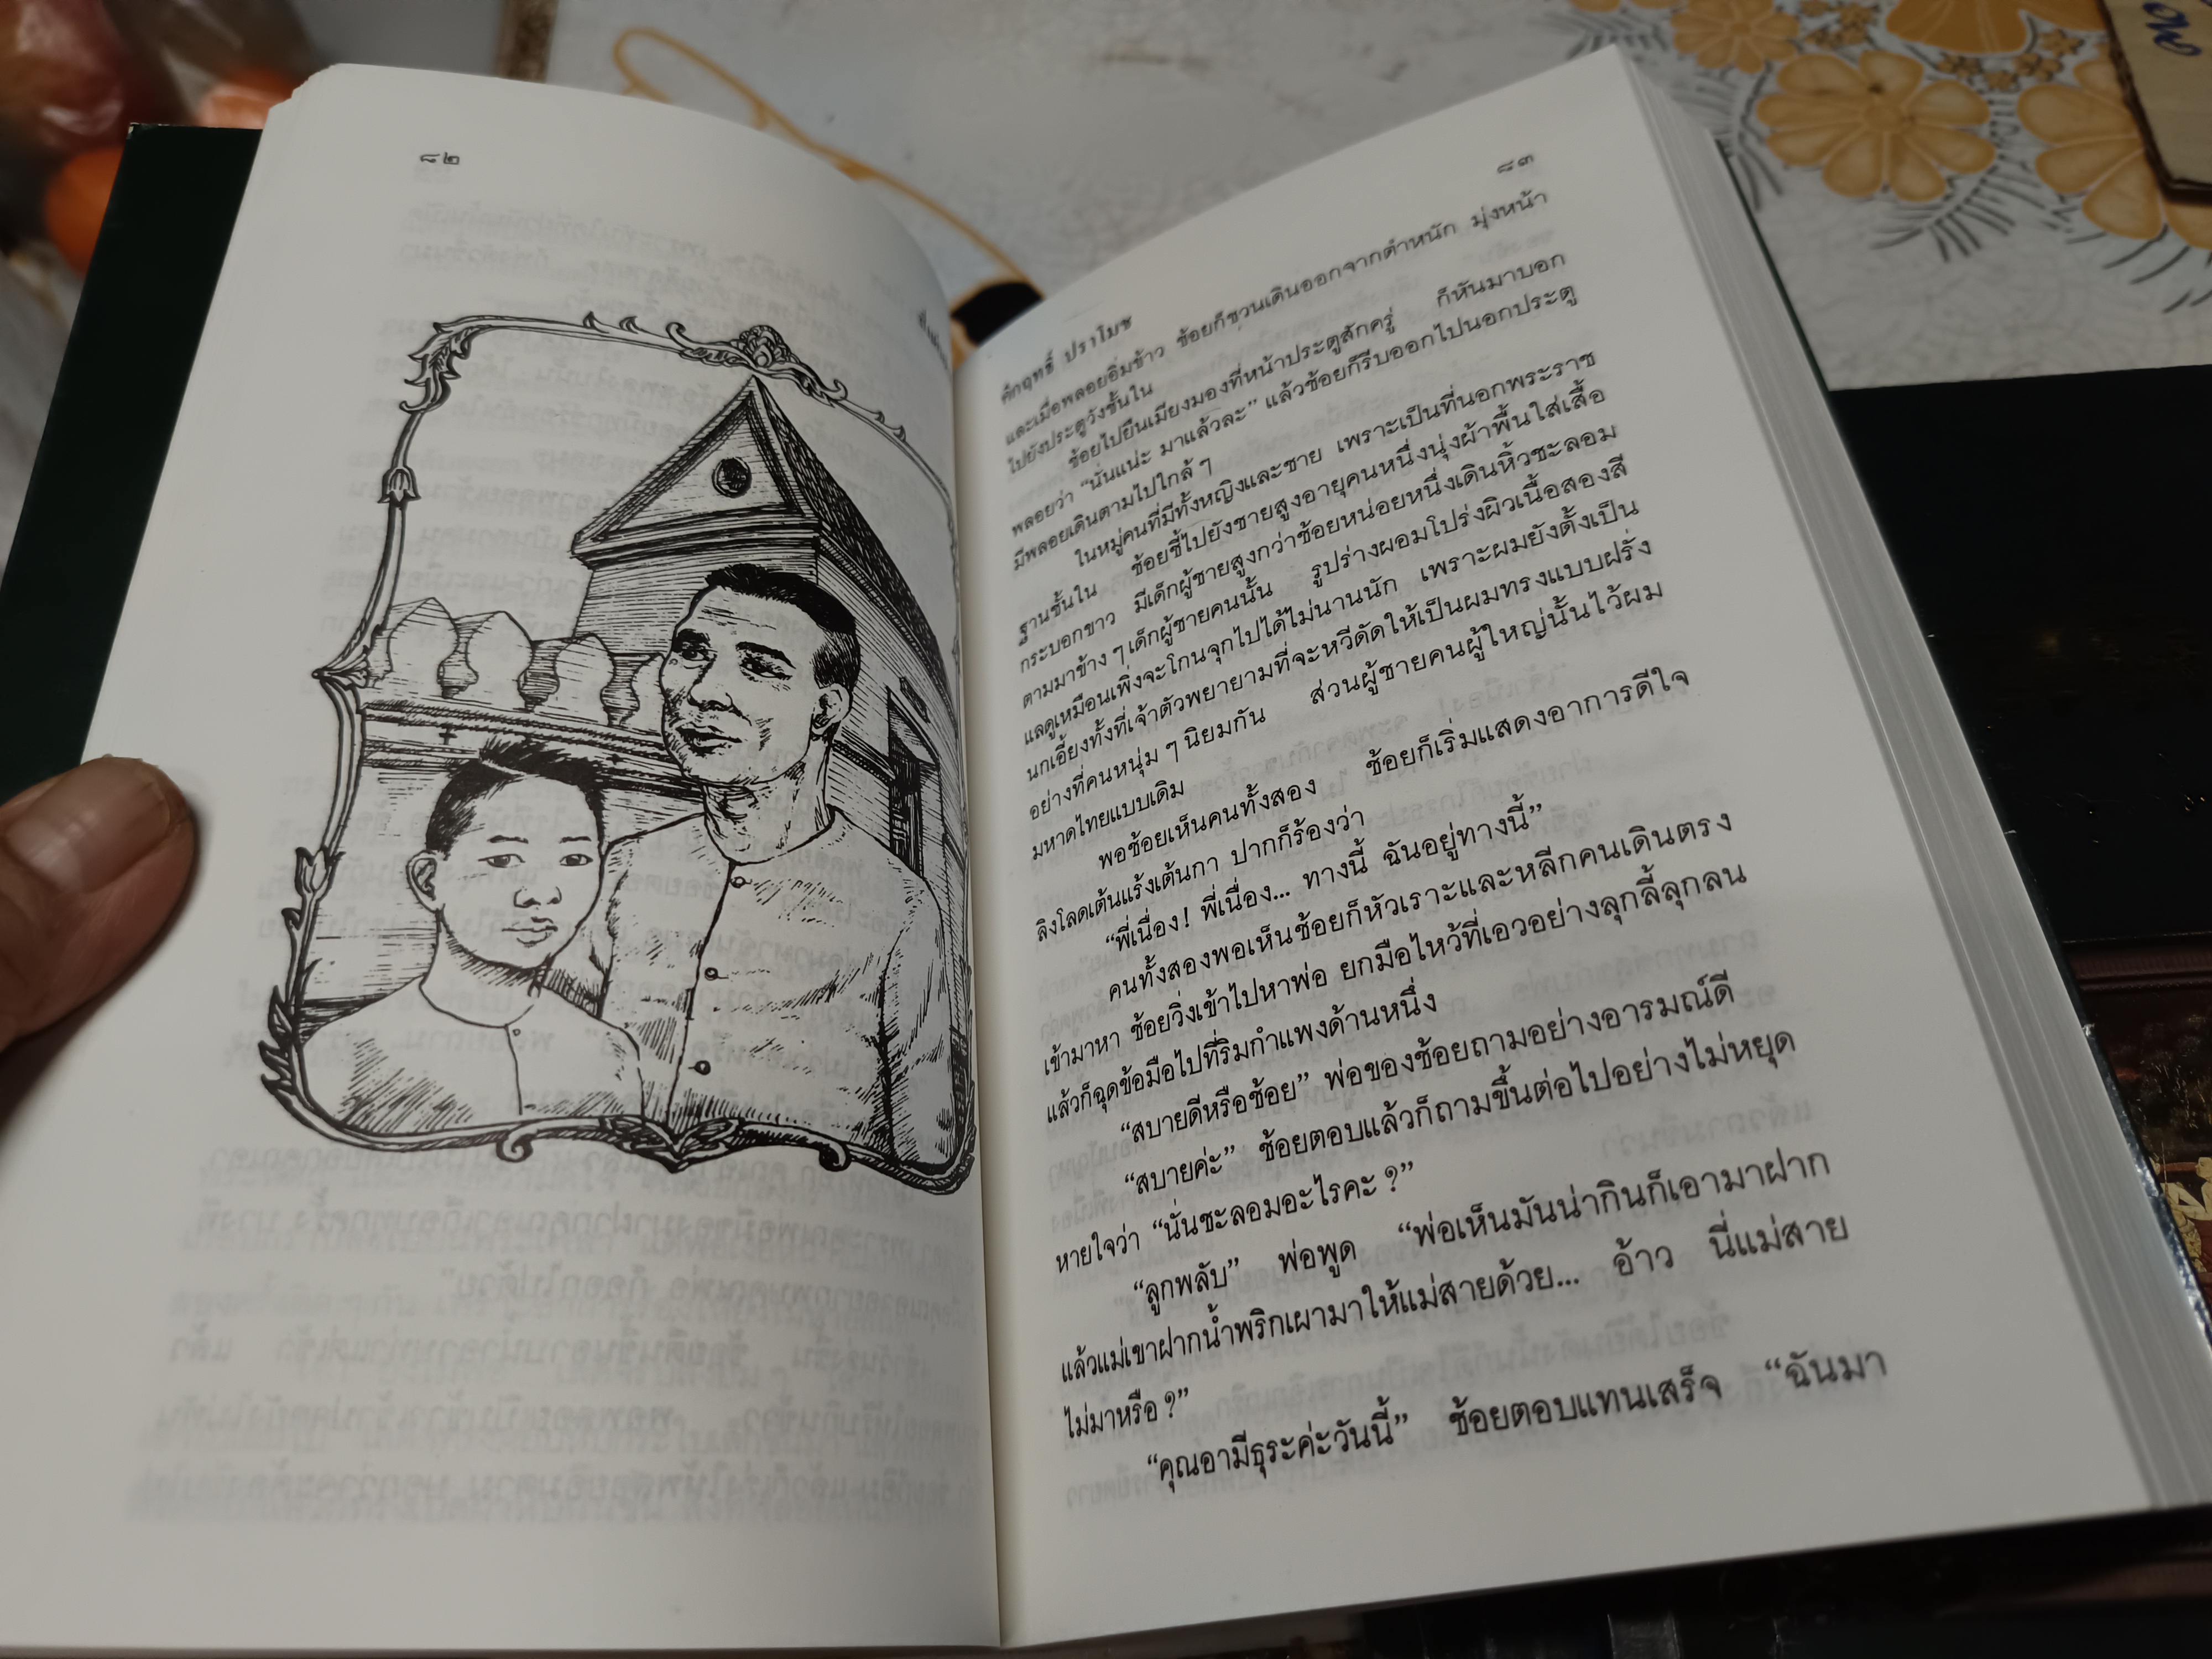 ๘๒
๘๓
คึกฤทธิ์ ปราโมช
และเมื่อพลอยอิ่มข้าว ช้อยก็ชวนเดินออกจากตำหนัก มุ่งหน้า
ไปยังประตูวังชั้นใน
ช้อยไปยืนเมียงมองที่หน้าประตูสักครู่ ก็หันมาบอก
พลอยว่า “นั่นแน่ะ มาแล้วละ” แล้วช้อยก็รีบออกไปนอกประตู
มีพลอยเดินตามไปใกล้ ๆ
ในหมู่คนที่มีทั้งหญิงและชาย เพราะเป็นที่นอกพระราช
ฐานชั้นใน ช้อยชี้ไปยังชายสูงอายุคนหนึ่งนุ่งผ้าพื้นใส่เสื้อ
กระบอกขาว มีเด็กผู้ชายสูงกว่าช้อยหน่อยหนึ่งเดินหิ้วชะลอม
ตามมาข้าง ๆ เด็กผู้ชายคนนั้น รูปร่างผอมโปร่งผิวเนื้อสองสี
แลดูเหมือนเพิ่งจะโกนจุกไปได้ไม่นานนัก เพราะผมยังตั้งเป็น
นกเอี้ยงทั้งที่เจ้าตัวพยายามที่จะหวีดัดให้เป็นผมทรงแบบฝรั่ง
อย่างที่คนหนุ่ม ๆ นิยมกัน ส่วนผู้ชายคนผู้ใหญ่นั้นไว้ผม
มหาดไทยแบบเดิม
พอช้อยเห็นคนทั้งสอง ช้อยก็เริ่มแสดงอาการดีใจ
ลิงโลดเต้นแร้งเต้นกา ปากก็ร้องว่า
“พี่เนื่อง ! พี่เนื่อง... ทางนี้ ฉันอยู่ทางนี้”
คนทั้งสองพอเห็นช้อยก็หัวเราะและหลีกคนเดินตรง
เข้ามาหา ช้อยวิ่งเข้าไปหาพ่อ ยกมือไหว้ที่เอวอย่างลุกลี้ลุกลน
แล้วก็ฉุดข้อมือไปที่ริมกำแพงด้านหนึ่ง
“สบายดีหรือช้อย” พ่อของช้อยถามอย่างอารมณ์ดี
“สบายค่ะ” ช้อยตอบแล้วก็ถามขึ้นต่อไปอย่างไม่หยุด
หายใจว่า “นั่นชะลอมอะไรคะ ?”
“ลูกพลับ” พ่อพูด “พ่อเห็นมันน่ากินก็เอามาฝาก
แล้วแม่เขาฝากน้ำพริกเผามาให้แม่สายด้วย... อ้าว นี่แม่สาย
ไม่มาหรือ ?”
“คุณอามีธุระค่ะวันนี้” ช้อยตอบแทนเสร็จ “ฉันมา